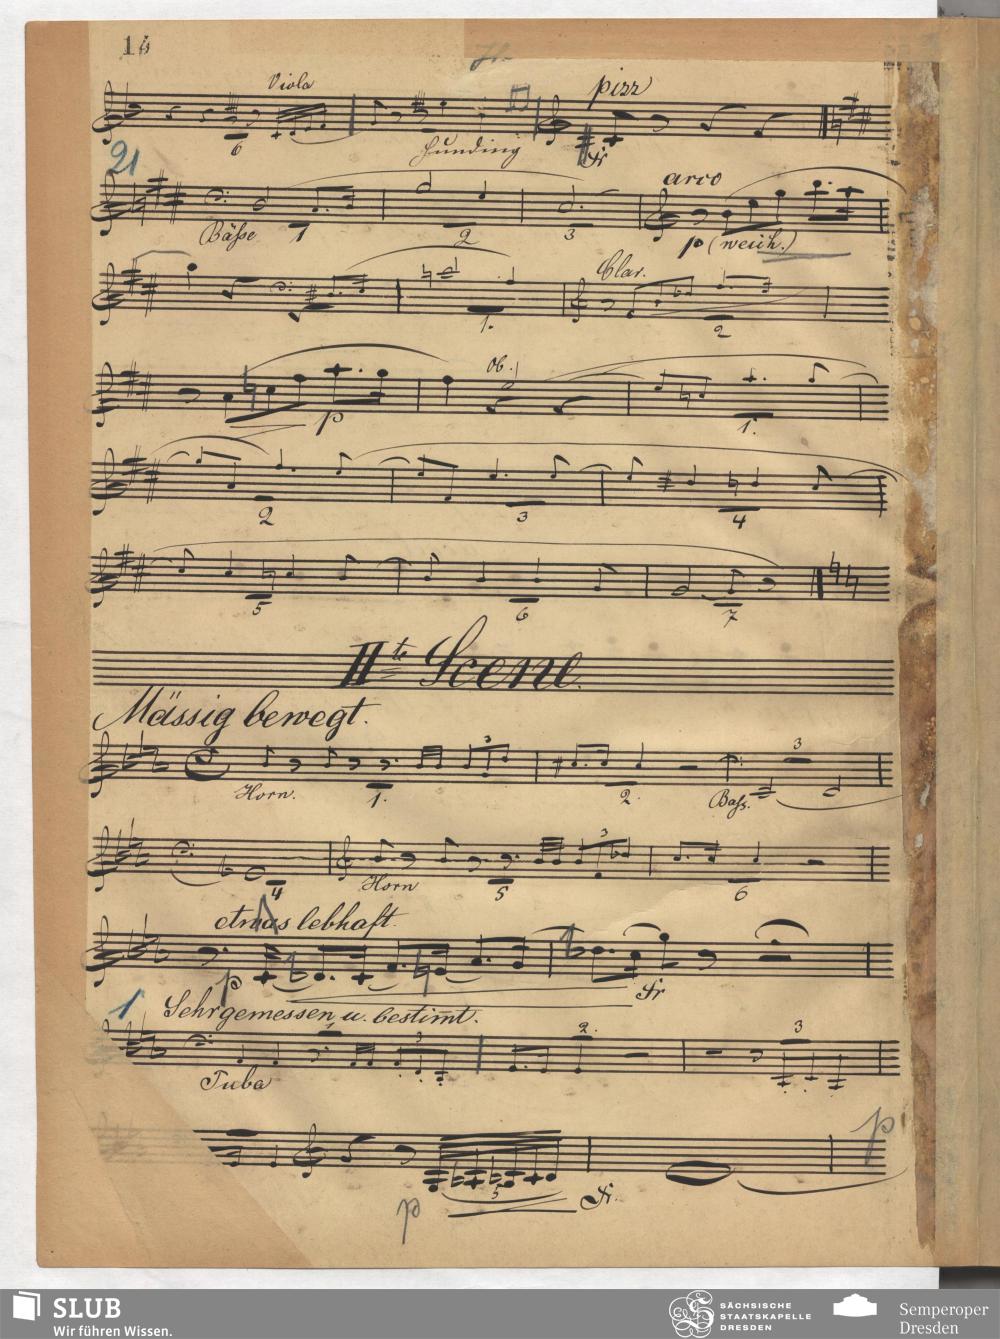 Viola
pizz
6
Hunding
fr
21
arco
Bäße 1 2 3
p (weich.)
Clar.
1. 2
ob.
p 1.
2 3 4
5 6 7
IIte Scene.
Mässig bewegt.
3 3
Horn. 1. 2. Baß.
3
4 Horn 5 6
etwas lebhaft.
p fr
1 Sehr gemessen u. bestimmt.
1 3 2. 3
Tuba
p
5
p fr.
SLUB
Wir führen Wissen.
SÄCHSISCHE
STAATSKAPELLE
DRESDEN
Semperoper
Dresden